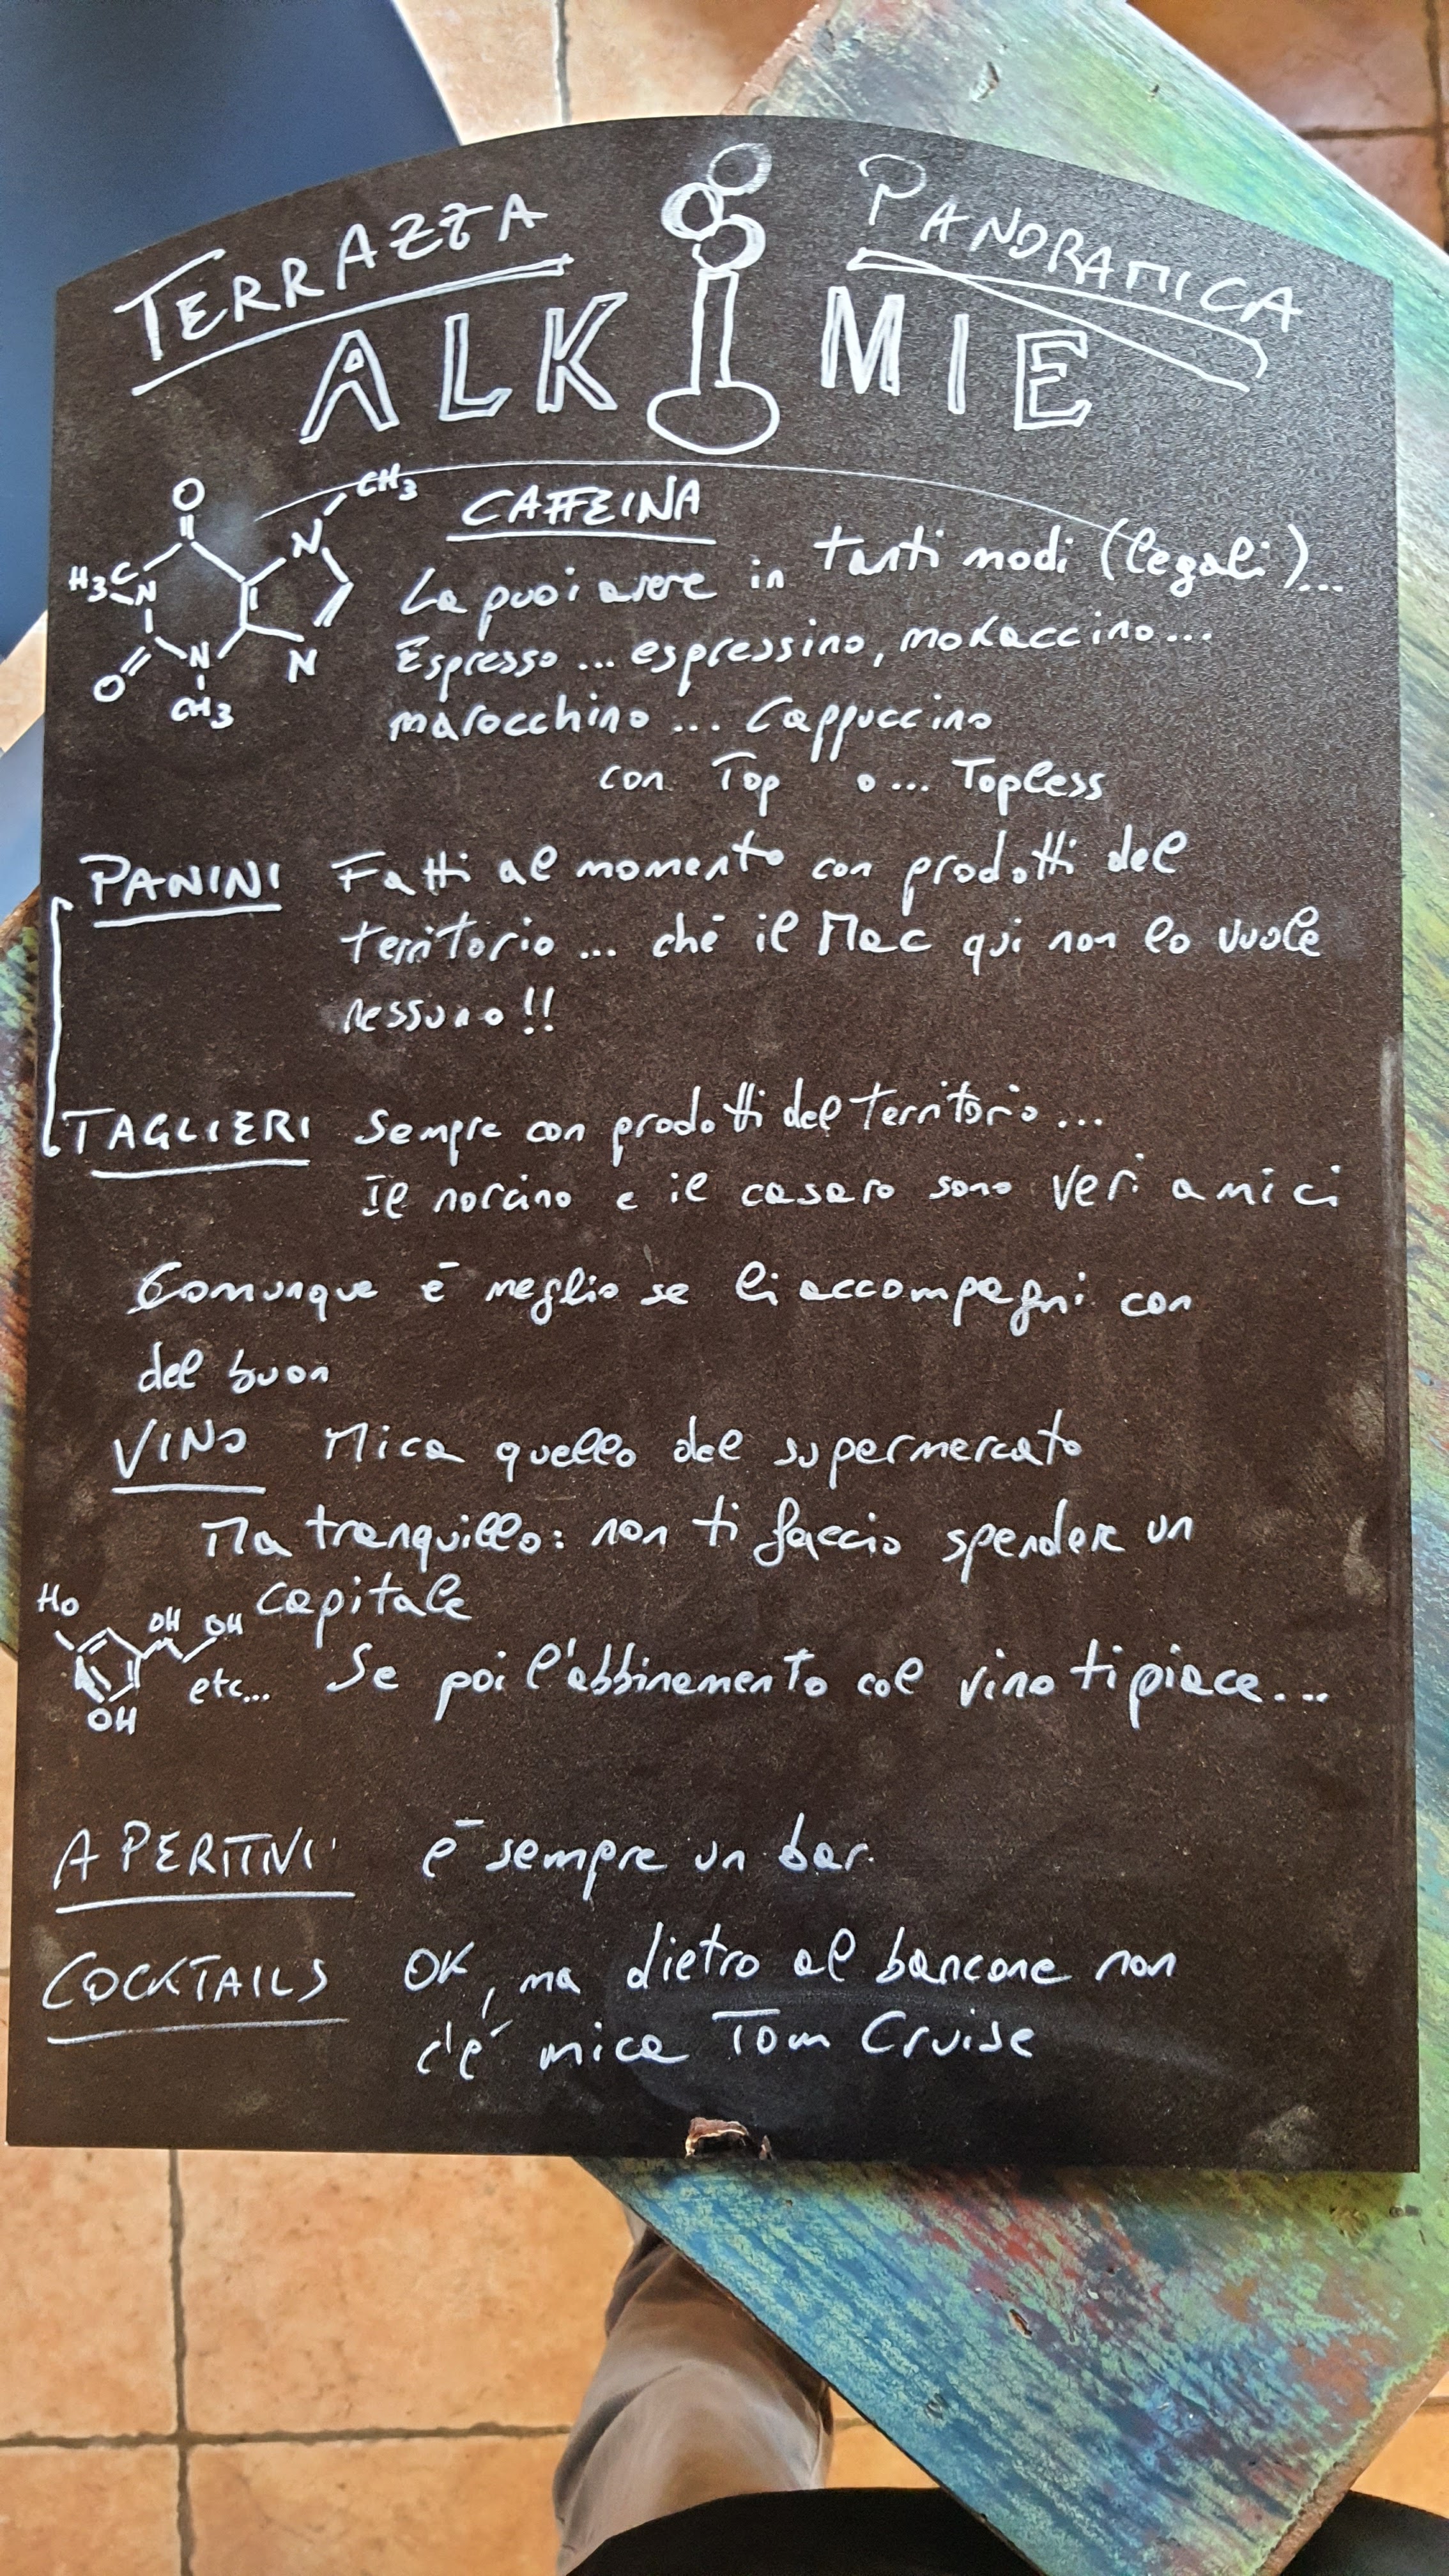 TERRAZZA PANORAMICA
ALKIMIE
CH3
O
CAFFEINA
N
H3C
N
La puoi avere in tanti modi (legali)...
Espresso ... espressino, mokaccino...
O
N
N
CH3
marocchino ... Cappuccino
con Top o ... Topless
PANINI Fatti al momento con prodotti del
territorio ... ché il Mac qui non lo vuole
nessuno!!
TAGLIERI Sempre con prodotti del territorio...
Il norcino e il casaro sono veri amici
Comunque è meglio se li accompagni con
del buon
VINO Mica quello del supermercato
Ma tranquillo: non ti faccio spendere un
capitale
HO
OH OH
etc...
OH
Se poi l'abbinamento col vino ti piace...
APERITIVI è sempre un bar
COCKTAILS OK, ma dietro al bancone non
c'é mica Tom Cruise